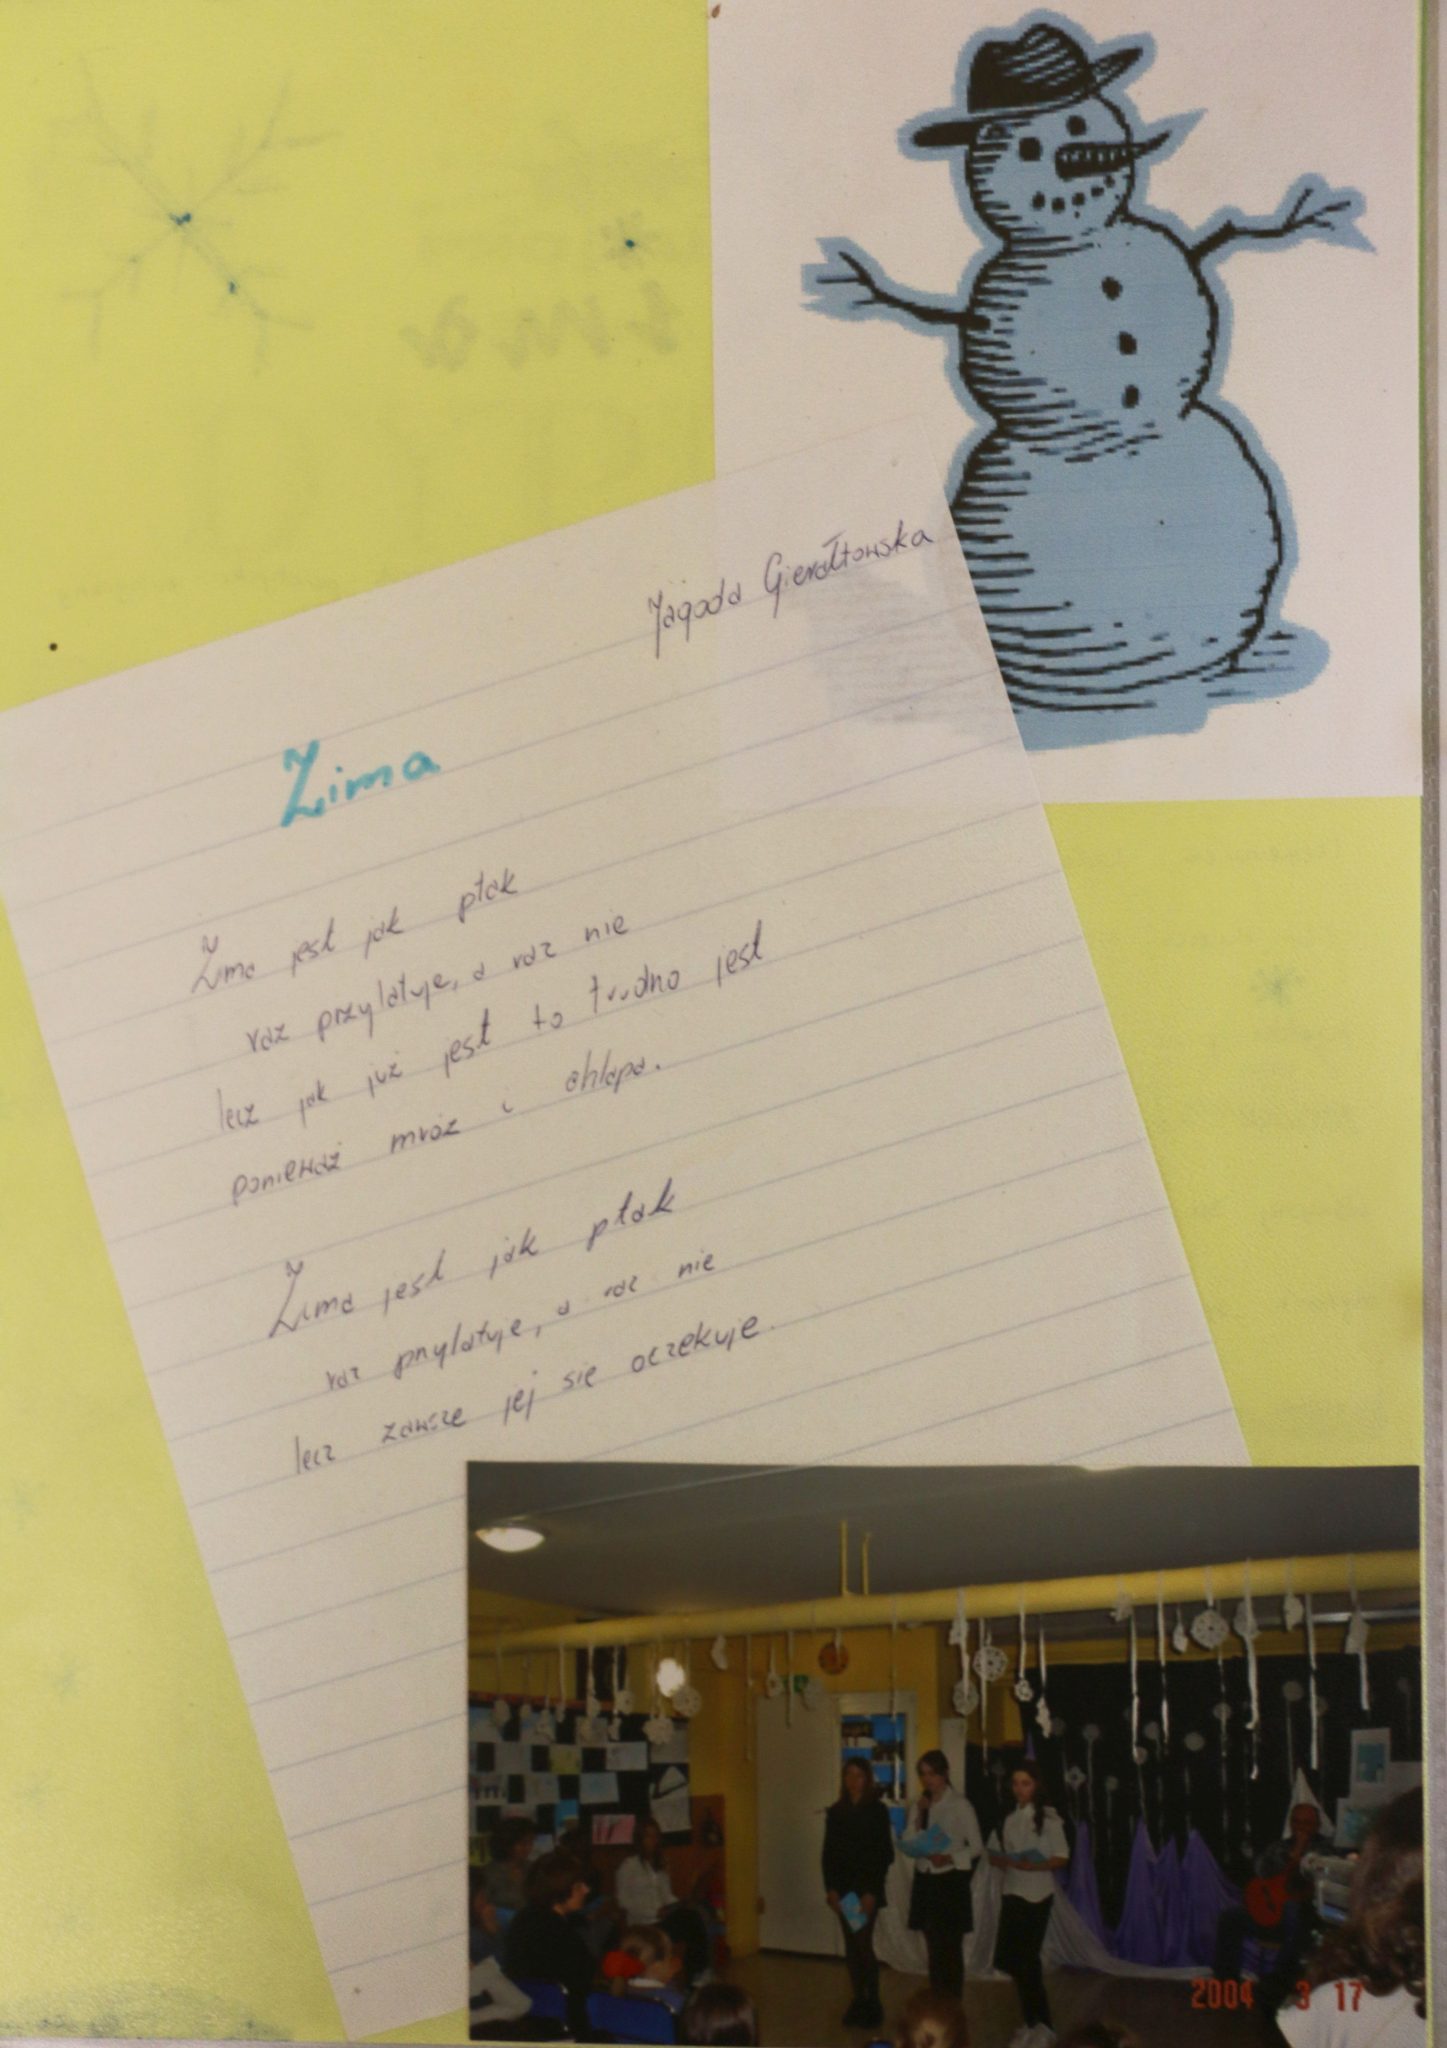 Jagoda Gierałtowska
Zima
Zima jest jak ptak
raz przylatuje, a raz nie
lecz jak już jest to trudno jest
ponieważ mróz i chlapa.
Zima jest jak ptak
raz przylatuje, a raz nie
lecz zawsze jej się oczekuje.
2004 3 17